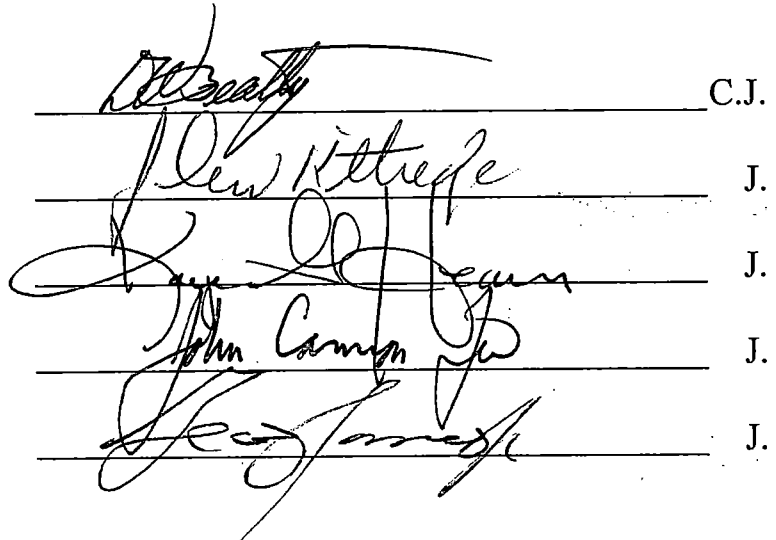 DWBeatty C.J.
John Kittredge J.
Kaye G. Hearn J.
John Cannon Few J.
Geo James Jr. J.